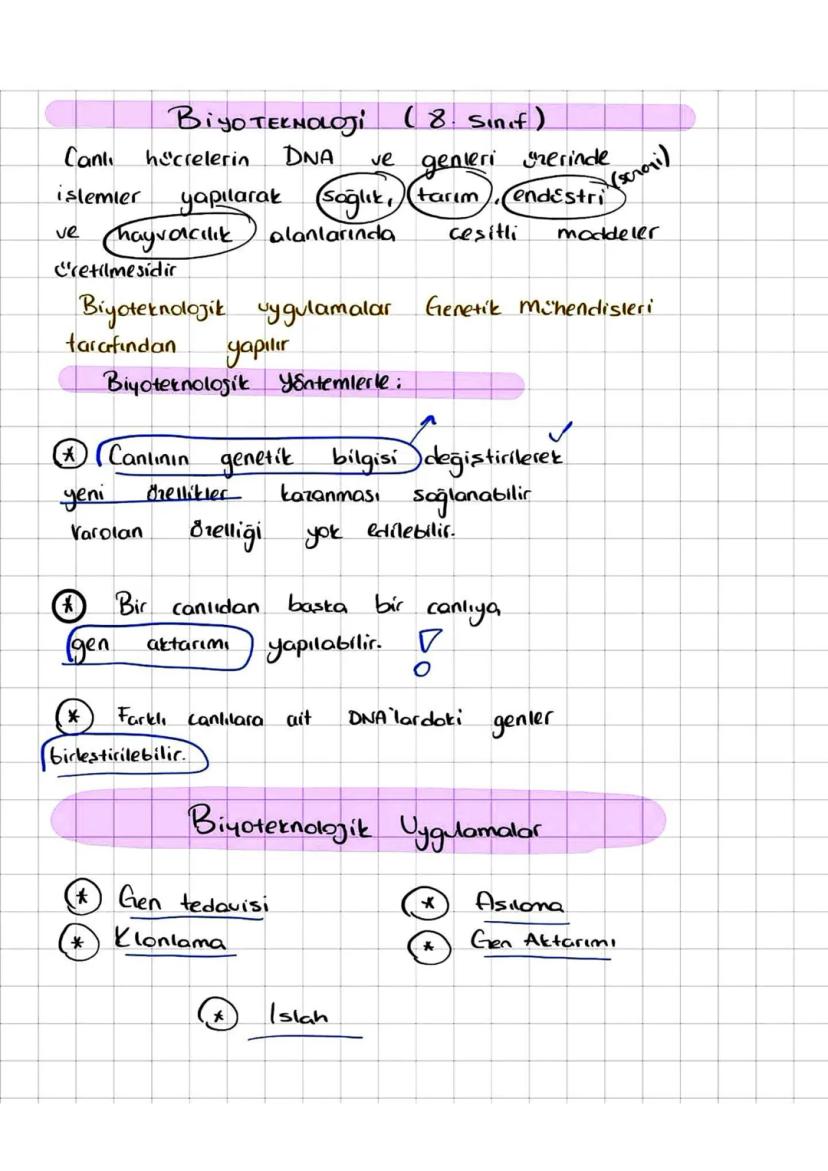 BiyoTEKNOLOJi (8. Sınıf)
Canlı hücrelerin DNA ve genleri üzerinde
işlemler yapılarak sağlık, tarım, endüstri (sanayi)
ve hayvancılık alanlarında çeşitli maddeler
üretilmesidir
Biyoteknolojik uygulamalar Genetik Mühendisleri
tarafından yapılır
Biyoteknolojik Yöntemlerle:
* Canlının genetik bilgisi değiştirilerek
yeni özellikler kazanması sağlanabilir
Varolan özelliği yok edilebilir.
* Bir canlıdan başka bir canlıya
gen aktarımı yapılabilir. !
* Farklı canlılara ait DNA'lardaki genler
birleştirilebilir.
Biyoteknolojik Uygulamalar
* Gen tedavisi
* Aşılama
* Klonlama
* Gen Aktarımı
* Islah